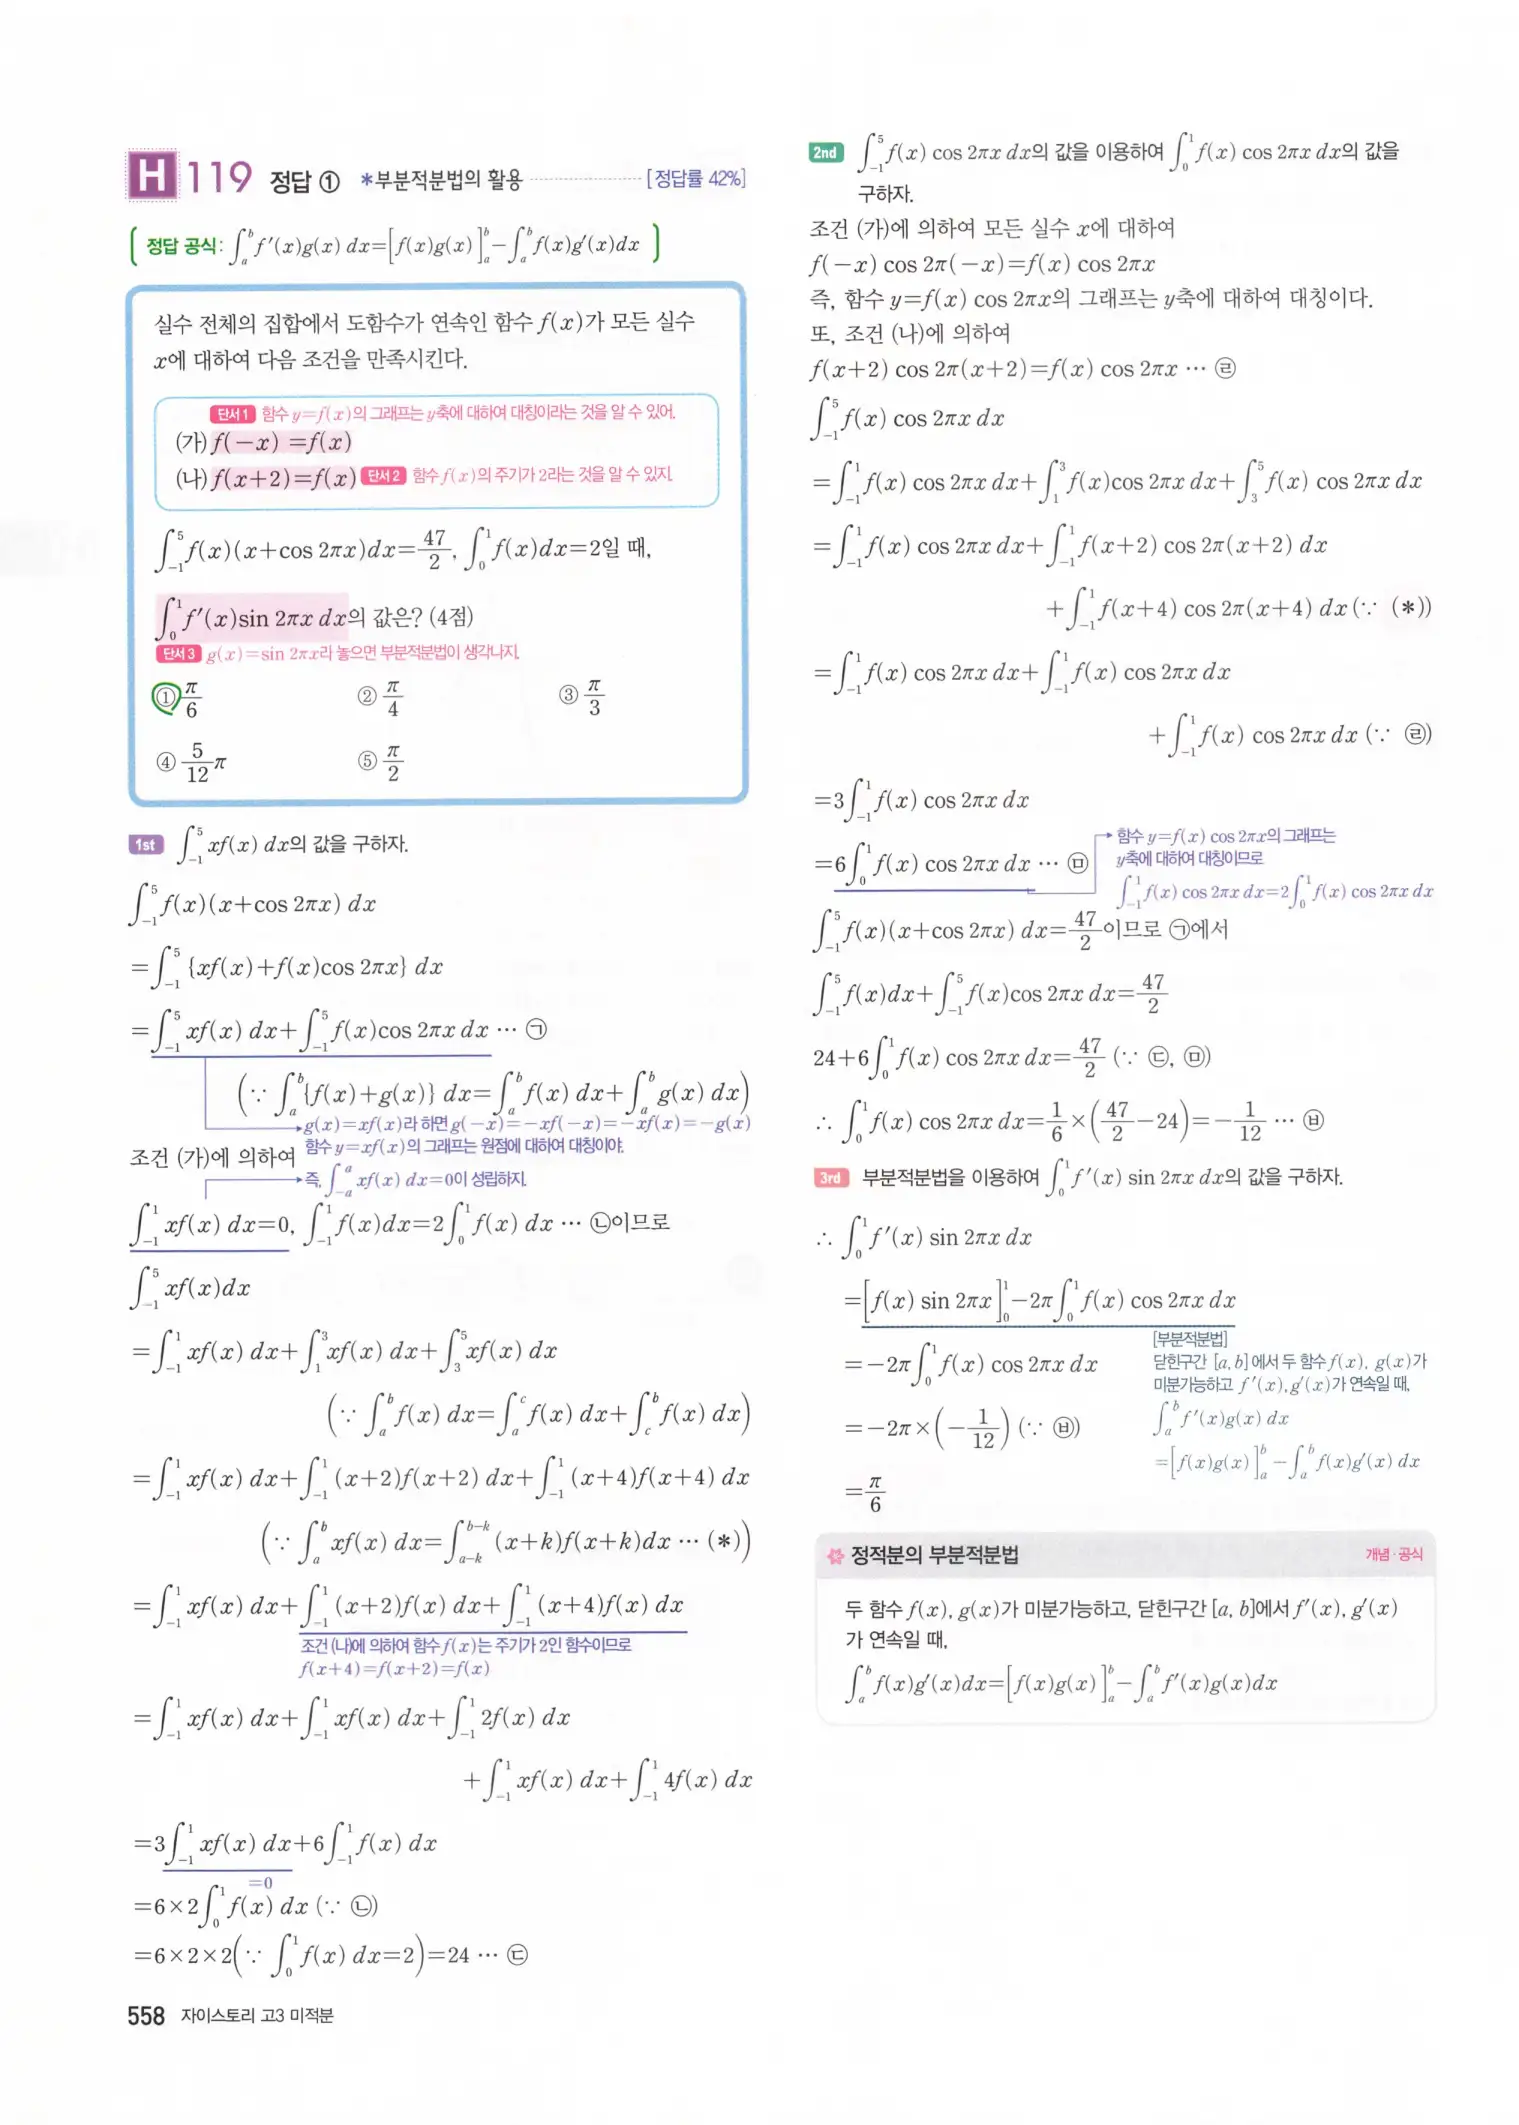 H 119 정답 ① *부분적분법의 활용 [정답률 42%]
[정답 공식: ∫_a^b f'(x)g(x) dx=[f(x)g(x)]_a^b-∫_a^b f(x)g'(x)dx]
실수 전체의 집합에서 도함수가 연속인 함수 f(x)가 모든 실수
x에 대하여 다음 조건을 만족시킨다.
단서1 함수 y=f(x)의 그래프는 y축에 대하여 대칭이라는 것을 알 수 있어.
(가) f(-x)=f(x)
(나) f(x+2)=f(x) 단서2 함수 f(x)의 주기가 2라는 것을 알 수 있지.
∫_{-1}^5 f(x)(x+cos 2πx)dx=47/2, ∫_0^1 f(x)dx=2일 때,
∫_0^1 f'(x)sin 2πx dx의 값은? (4점)
단서3 g(x)=sin 2πx라 놓으면 부분적분법이 생각나지.
① π/6 ② π/4 ③ π/3
④ 5/12 π ⑤ π/2
1st ∫_{-1}^5 xf(x) dx의 값을 구하자.
∫_{-1}^5 f(x)(x+cos 2πx) dx
=∫_{-1}^5 {xf(x)+f(x)cos 2πx} dx
=∫_{-1}^5 xf(x) dx+∫_{-1}^5 f(x)cos 2πx dx ··· ㉠
(∵ ∫_a^b{f(x)+g(x)} dx=∫_a^b f(x) dx+∫_a^b g(x) dx)
g(x)=xf(x)라 하면 g(-x)=-xf(-x)=-xf(x)=-g(x)
함수 y=xf(x)의 그래프는 원점에 대하여 대칭이야.
조건 (가)에 의하여
즉, ∫_{-a}^a xf(x) dx=0이 성립하지.
∫_{-1}^1 xf(x) dx=0, ∫_{-1}^1 f(x)dx=2∫_0^1 f(x) dx ··· ㉡이므로
∫_{-1}^5 xf(x)dx
=∫_{-1}^1 xf(x) dx+∫_1^3 xf(x) dx+∫_3^5 xf(x) dx
(∵ ∫_a^b f(x) dx=∫_a^c f(x) dx+∫_c^b f(x) dx)
=∫_{-1}^1 xf(x) dx+∫_{-1}^1 (x+2)f(x+2) dx+∫_{-1}^1 (x+4)f(x+4) dx
(∵ ∫_a^b xf(x) dx=∫_{a-k}^{b-k} (x+k)f(x+k)dx ··· (*))
=∫_{-1}^1 xf(x) dx+∫_{-1}^1 (x+2)f(x) dx+∫_{-1}^1 (x+4)f(x) dx
조건 (나)에 의하여 함수 f(x)는 주기가 2인 함수이므로
f(x+4)=f(x+2)=f(x)
=∫_{-1}^1 xf(x) dx+∫_{-1}^1 xf(x) dx+∫_{-1}^1 2f(x) dx
+∫_{-1}^1 xf(x) dx+∫_{-1}^1 4f(x) dx
=3∫_{-1}^1 xf(x) dx+6∫_{-1}^1 f(x) dx
=0
=6×2∫_0^1 f(x) dx (∵ ㉡)
=6×2×2(∵ ∫_0^1 f(x) dx=2)=24 ··· ㉢
558 자이스토리 고3 미적분
2nd ∫_{-1}^5 f(x) cos 2πx dx의 값을 이용하여 ∫_0^1 f(x) cos 2πx dx의 값을
구하자.
조건 (가)에 의하여 모든 실수 x에 대하여
f(-x) cos 2π(-x)=f(x) cos 2πx
즉, 함수 y=f(x) cos 2πx의 그래프는 y축에 대하여 대칭이다.
또, 조건 (나)에 의하여
f(x+2) cos 2π(x+2)=f(x) cos 2πx ··· ㉣
∫_{-1}^5 f(x) cos 2πx dx
=∫_{-1}^1 f(x) cos 2πx dx+∫_1^3 f(x)cos 2πx dx+∫_3^5 f(x) cos 2πx dx
=∫_{-1}^1 f(x) cos 2πx dx+∫_{-1}^1 f(x+2) cos 2π(x+2) dx
+∫_{-1}^1 f(x+4) cos 2π(x+4) dx (∵ (*))
=∫_{-1}^1 f(x) cos 2πx dx+∫_{-1}^1 f(x) cos 2πx dx
+∫_{-1}^1 f(x) cos 2πx dx (∵ ㉣)
=3∫_{-1}^1 f(x) cos 2πx dx
=6∫_0^1 f(x) cos 2πx dx ··· ㉤
함수 y=f(x) cos 2πx의 그래프는
y축에 대하여 대칭이므로
∫_{-1}^1 f(x) cos 2πx dx=2∫_0^1 f(x) cos 2πx dx
∫_{-1}^5 f(x)(x+cos 2πx) dx=47/2이므로 ㉠에서
∫_{-1}^5 f(x)dx+∫_{-1}^5 f(x)cos 2πx dx=47/2
24+6∫_0^1 f(x) cos 2πx dx=47/2 (∵ ㉢, ㉤)
∴ ∫_0^1 f(x) cos 2πx dx=1/6×(47/2-24)=-1/12 ··· ㉥
3rd 부분적분법을 이용하여 ∫_0^1 f'(x) sin 2πx dx의 값을 구하자.
∴ ∫_0^1 f'(x) sin 2πx dx
=[f(x) sin 2πx]_0^1-2π∫_0^1 f(x) cos 2πx dx
=-2π∫_0^1 f(x) cos 2πx dx
=-2π×(-1/12) (∵ ㉥)
=π/6
[부분적분법]
닫힌구간 [a, b]에서 두 함수 f(x), g(x)가
미분가능하고 f'(x), g'(x)가 연속일 때,
∫_a^b f'(x)g(x) dx
=[f(x)g(x)]_a^b-∫_a^b f(x)g'(x) dx
정적분의 부분적분법 개념·공식
두 함수 f(x), g(x)가 미분가능하고, 닫힌구간 [a, b]에서 f'(x), g'(x)
가 연속일 때,
∫_a^b f(x)g'(x)dx=[f(x)g(x)]_a^b-∫_a^b f'(x)g(x)dx